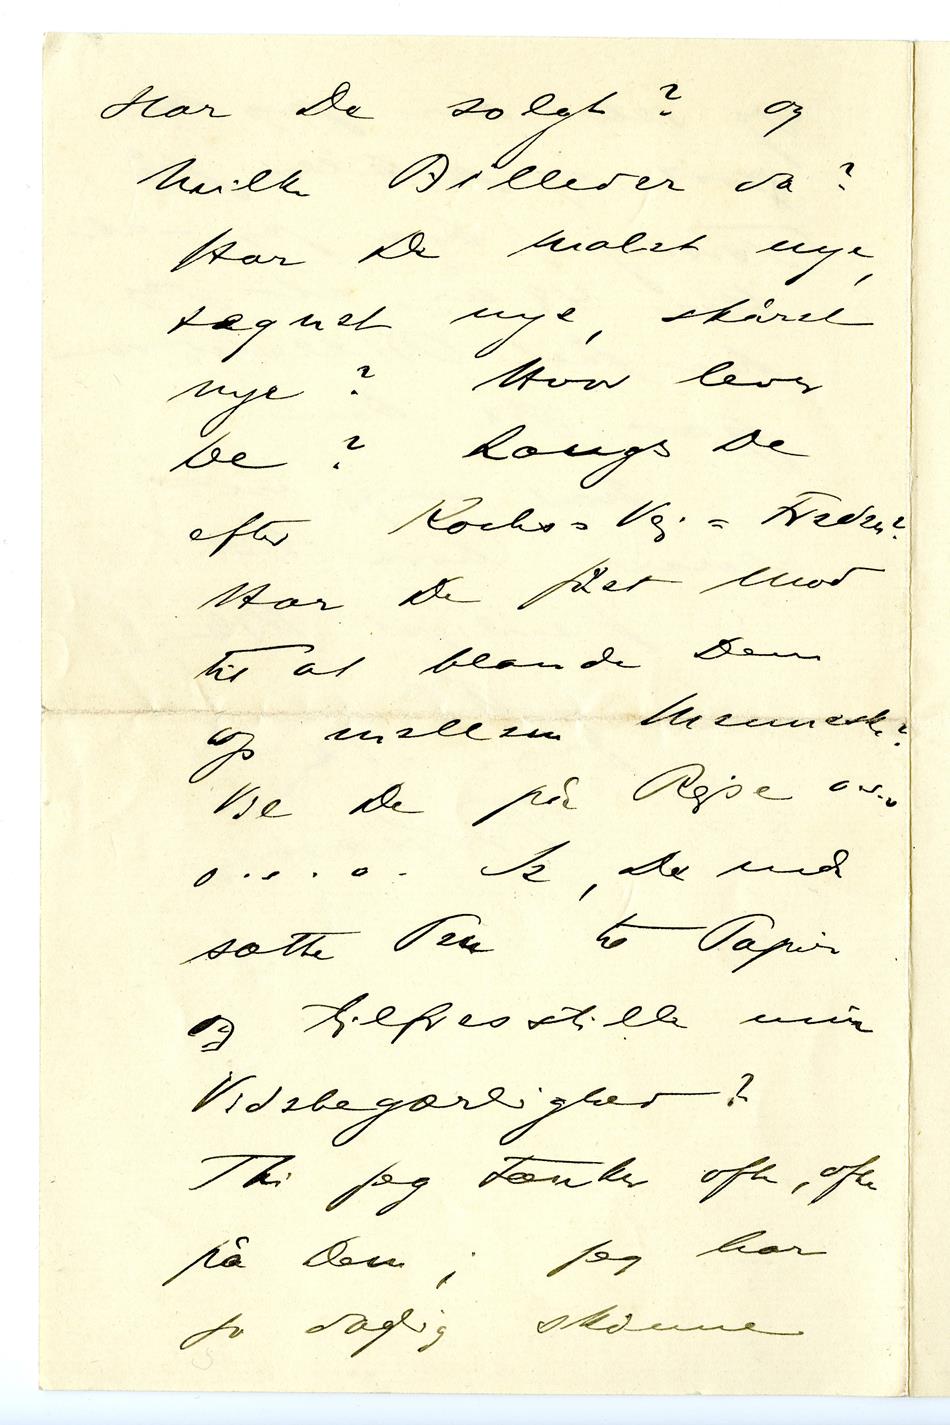 Har De solgt? og
hvilke Billeder da?
Har De malet nye,
tegnet nye, skåret
nye? Hvor lever
De? Længs De
efter Kochs=Vej=Freden?
Har De fået Mod
til at blande Dem
op mellem Mennesker?
Vil De på Rejse o.s.v.
o.s.v. Se, De må
sætte Pen til Papir
og tilfresstille min
Videbegærlighed?
Thi jeg tænker ofte, ofte
på Dem; jeg har
jo daglig skønne